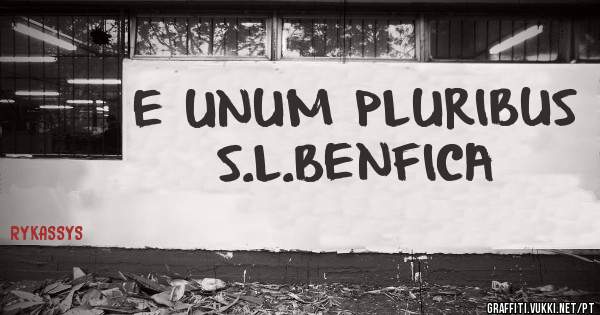 E UNUM PLURIBUS
S.L.BENFICA
RYKASSYS
GRAFFITI.VUKKI.NET/PT